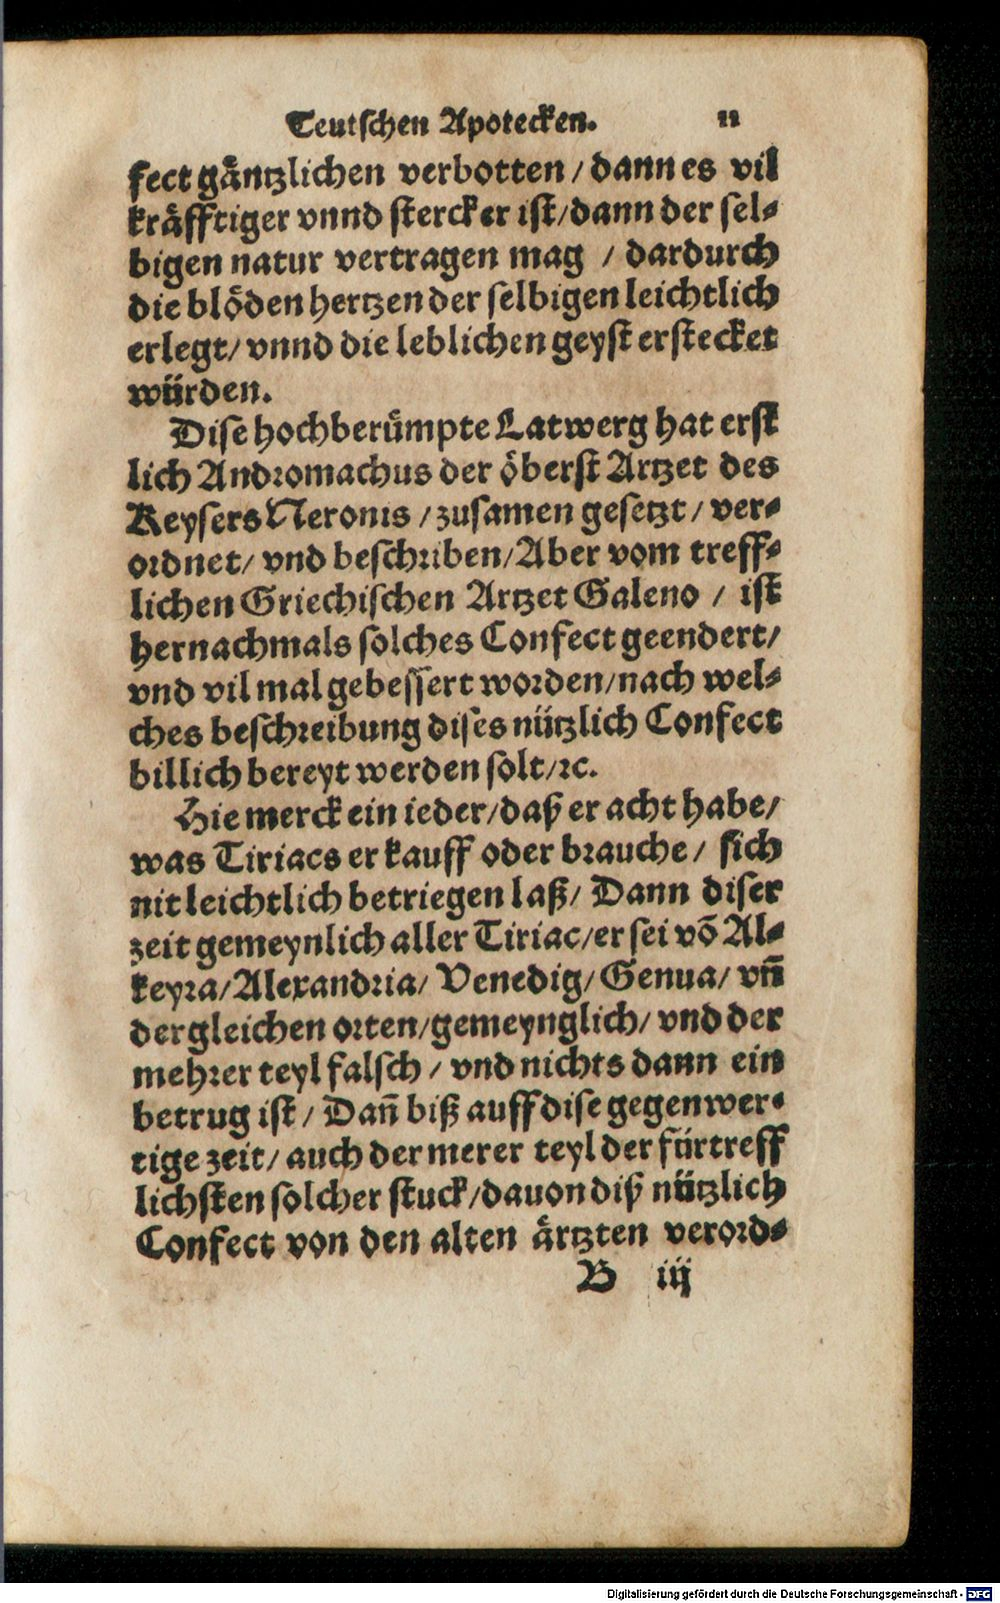 Teutschen Apotecken. 11
fect gäntzlichen verbotten / dann es vil
kräfftiger vnnd stercker ist / dann der sel⸗
bigen natur vertragen mag / dardurch
die blöden hertzen der selbigen leichtlich
erlegt / vnnd die leblichen geyst erstecket
würden.
Dise hochberümpte Latwerg hat erst
lich Andromachus der öberst Artzet des
Keysers Neronis / zusamen gesetzt / ver⸗
ordnet / vnd beschriben / Aber vom treff⸗
lichen Griechischen Artzet Galeno / ist
hernachmals solches Confect geendert /
vnd vil mal gebessert worden / nach wel⸗
ches beschreibung dises nützlich Confect
billich bereyt werden solt / ꝛc.
Hie merck ein ieder / daß er acht habe /
was Tiriacs er kauff oder brauche / sich
nit leichtlich betriegen laß / Dann diser
zeit gemeynlich aller Tiriac / er sei võ Al⸗
keyra / Alexandria / Venedig / Genua / vñ
der gleichen orten / gemeynglich / vnd der
mehrer teyl falsch / vnd nichts dann ein
betrug ist / Dañ biß auff dise gegenwer⸗
tige zeit / auch der merer teyl der fürtreff
lichsten solcher stuck / dauon diß nützlich
Confect von den alten ärtzten verord⸗
B iij
Digitalisierung gefördert durch die Deutsche Forschungsgemeinschaft - DFG